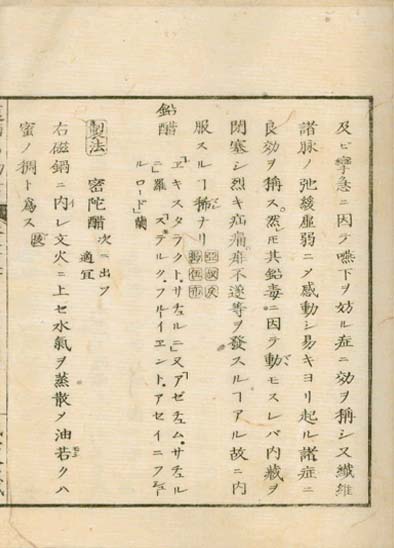 及ビ攣急ニ因テ嚥下ヲ妨ル症ニ効ヲ称シ又纎維
諸脉ノ弛緩虚弱ニメ感動シ易キヨリ起ル諸症ニ
良効ヲ称ス然𪜈其鉛毒ニ因テ動モスレバ内蔵ヲ
閉塞シ烈キ疝痛痲痺不遂等ヲ發スルヿアル故ニ内
服スルヿ稀ナリ
鉛醋 ヱキスタラクト、サチュルニ」又「アゼチュム、サチュル
ニ」羅 ステルク、フルーイヱント、アセイニフ
ルロード」蘭
製法 密陀醋 次ニ出ツ 適宜
右磁鍋ニ内レ文火ニ上セ水氣ヲ蒸散メ油若クハ
蜜ノ稠ト爲ス